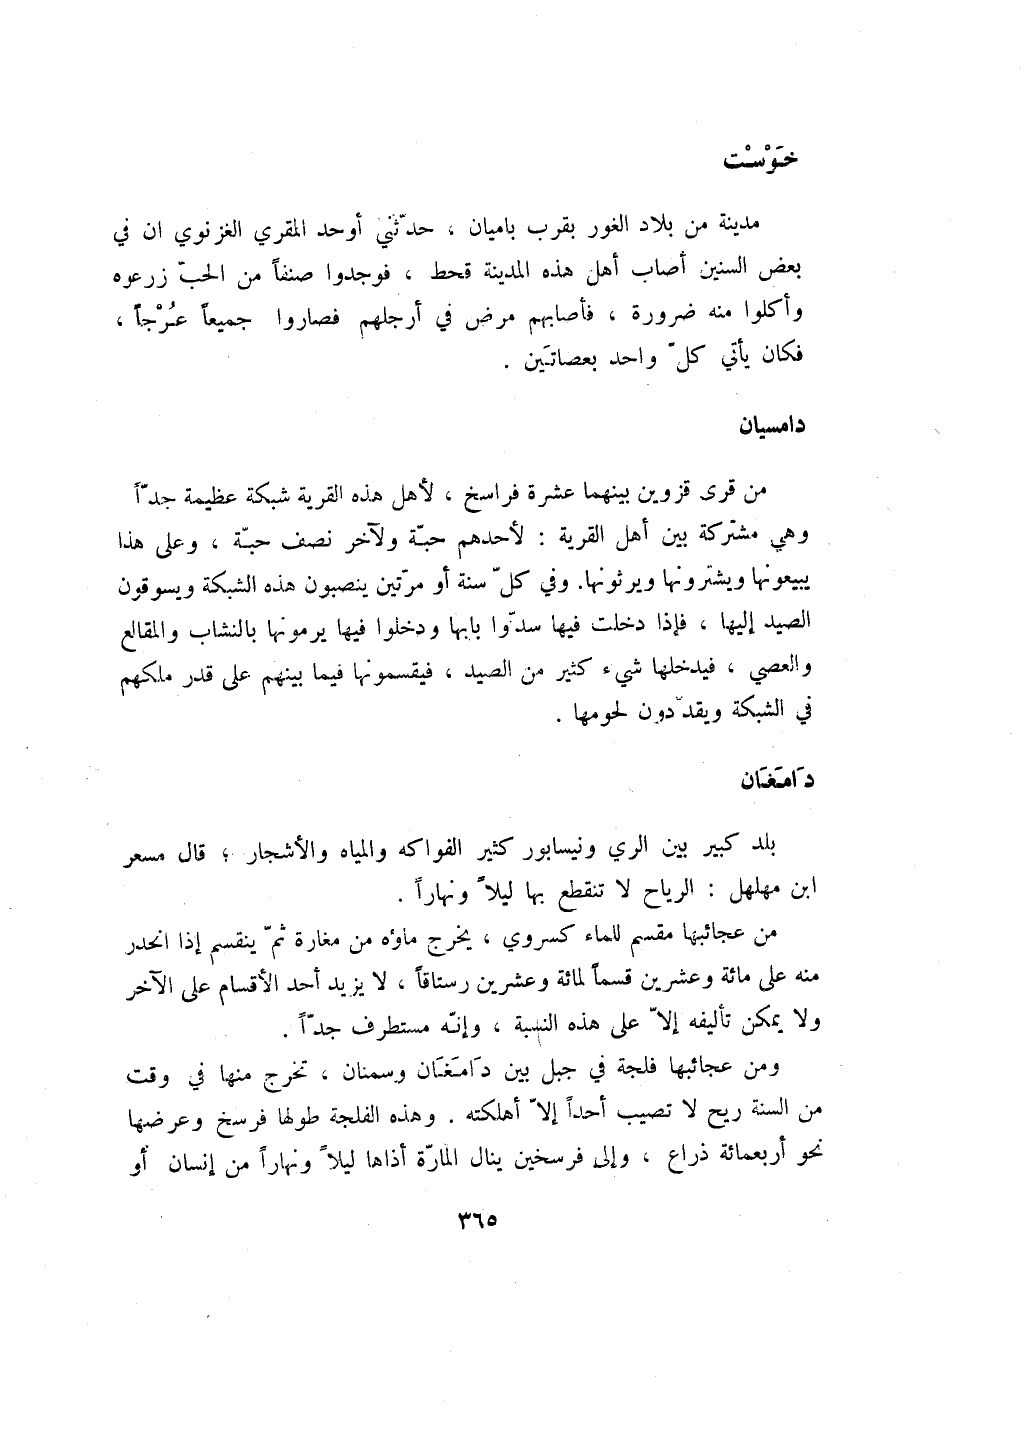 خَوْسْت
مدينة من بلاد الغور بقرب باميان ، حدّثني أوحد المقري الغزنوي ان في
بعض السنين أصاب أهل هذه المدينة قحط ، فوجدوا صنفاً من الحبّ زرعوه
وأكلوا منه ضرورة ، فأصابهم مرض في أرجلهم فصاروا جميعاً عُرْجاً ،
فكان يأتي كلّ واحد بعصاتَين .
دامسيان
من قرى قزوين بينهما عشرة فراسخ ، لأهل هذه القرية شبكة عظيمة جدّاً
وهي مشتركة بين أهل القرية : لأحدهم حبّة ولآخر نصف حبّة ، وعلى هذا
يبيعونها ويشترونها ويرثونها. وفي كلّ سنة أو مرّتين ينصبون هذه الشبكة ويسوقون
الصيد إليها ، فإذا دخلت فيها سدّوا بابها ودخلوا فيها يرمونها بالنشاب والمقالع
والعصي ، فيدخلها شيء كثير من الصيد ، فيقسمونها فيما بينهم على قدر ملكهم
في الشبكة ويقدّدون لحومها .
دَامَغَان
بلد كبير بين الري ونيسابور كثير الفواكه والمياه والأشجار ؛ قال مسعر
ابن مهلهل : الرياح لا تنقطع بها ليلاً ونهاراً .
من عجائبها مقسم للماء كسروي ، يخرج ماؤه من مغارة ثمّ ينقسم إذا انحدر
منه على مائة وعشرين قسماً لمائة وعشرين رستاقاً ، لا يزيد أحد الأقسام على الآخر
ولا يمكن تأليفه إلاّ على هذه النسبة ، وإنّه مستطرف جدّاً .
ومن عجائبها فلجة في جبل بين دَامَغَان وسمنان ، تخرج منها في وقت
من السنة ريح لا تصيب أحداً إلاّ أهلكته . وهذه الفلجة طولها فرسخ وعرضها
نحو أربعمائة ذراع ، وإلى فرسخين ينال المارّة أذاها ليلاً ونهاراً من إنسان أو
٣٦٥